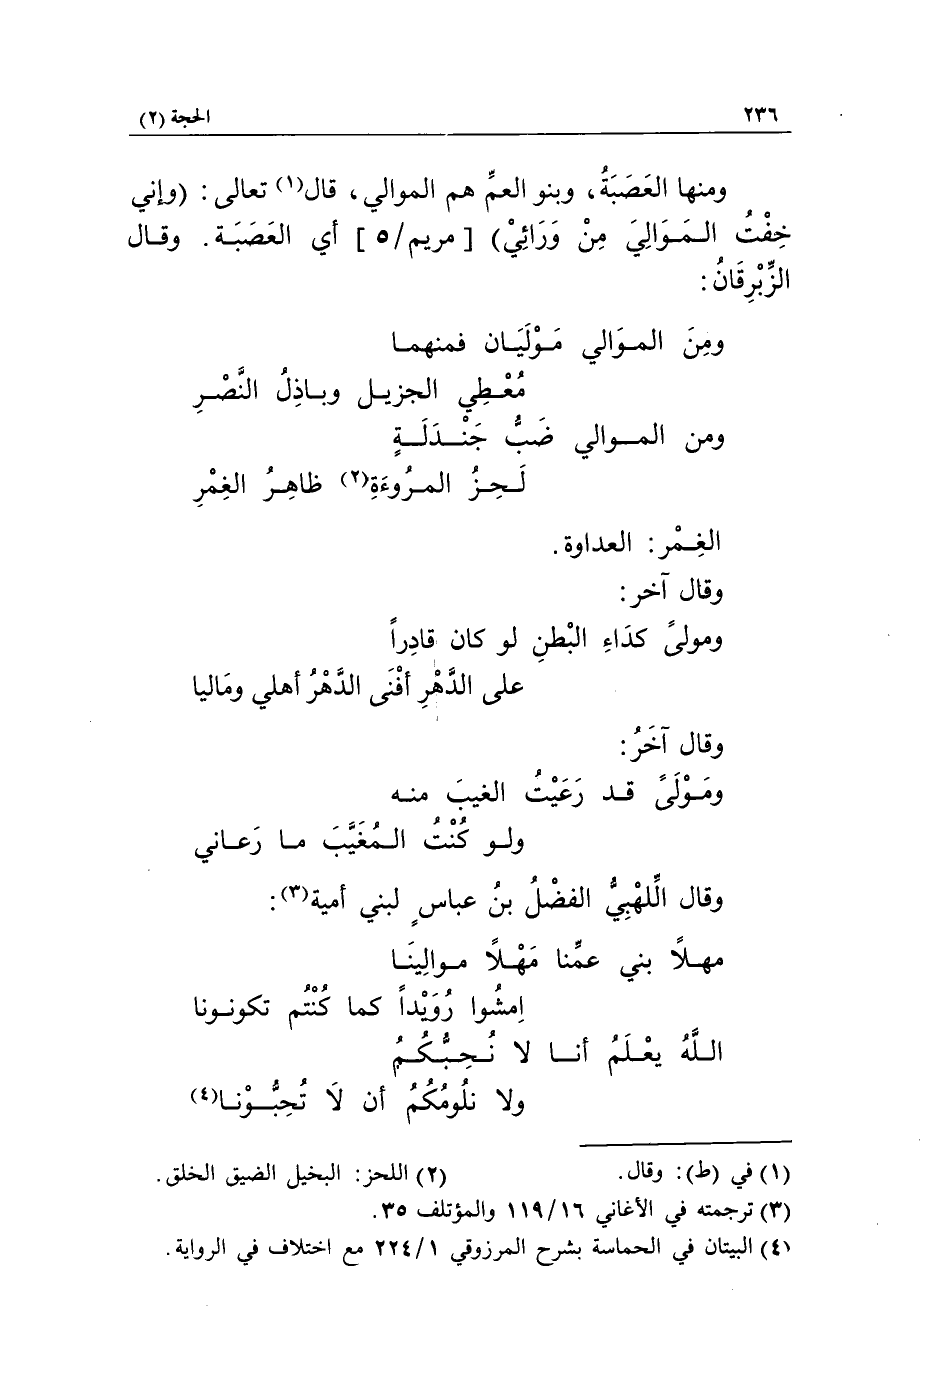 ٢٣٦ الحجة (٢)
ومنها العَصَبَةُ، وبنو العمِّ هم الموالي، قال(١) تعالى: (وإني
خِفْتُ الـمَـوَالِيَ مِنْ وَرَائِيْ) [مريم/٥] أي العَصَبَـة. وقـال
الزِّبْرِقَانُ:
ومِنَ المـوَالي مَـوْلَيَـان فمنهمـا
مُعْـطِي الجزيـل وبـاذِلُ النَّصْـرِ
ومن المـــوالي ضَبُّ جَنْــدَلَــةٍ
لَـحِـزُ المـرُوءَةِ(٢) ظاهِـرُ الغِمْرِ
الغِـمْر: العداوة.
وقال آخر:
ومولىً كدَاءِ البْطنِ لو كان قادِراً
على الدَّهْرِ أفْنَى الدَّهْرُ أهلي ومَاليا
وقال آخَرُ:
ومَـوْلَىً قـد رَعَيْتُ الغيبَ منـه
ولـو كُنْتُ الـمُغَيَّبَ مـا رَعـاني
وقال الَّلهْبِيُّ الفضْلُ بنُ عباسٍ لبني أمية(٣):
مهـلاً بني عمِّنا مَهْـلاً مـوالِينَـا
اِمشُوا رُوَيْداً كما كُنْتُم تكونـونا
اللَّهُ يعْـلَمُ أنـا لا نُـحِبُّـكُـمُ
ولا نلُومُكُمُ أن لاَ تُحِبُّــوْنـا(٤)
(١) في (ط): وقال. (٢) اللحز: البخيل الضيق الخلق.
(٣) ترجمته في الأغاني ١١٩/١٦ والمؤتلف ٣٥.
(٤) البيتان في الحماسة بشرح المرزوقي ٢٢٤/١ مع اختلاف في الرواية.